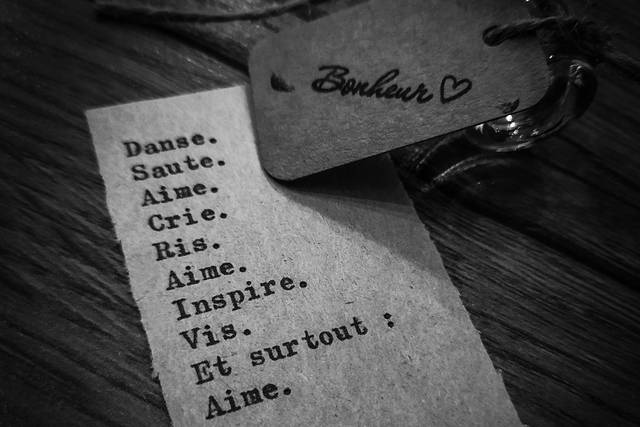 Bonheur ♡
Danse.
Saute.
Aime.
Crie.
Ris.
Aime.
Inspire.
Vis.
Et surtout :
Aime.